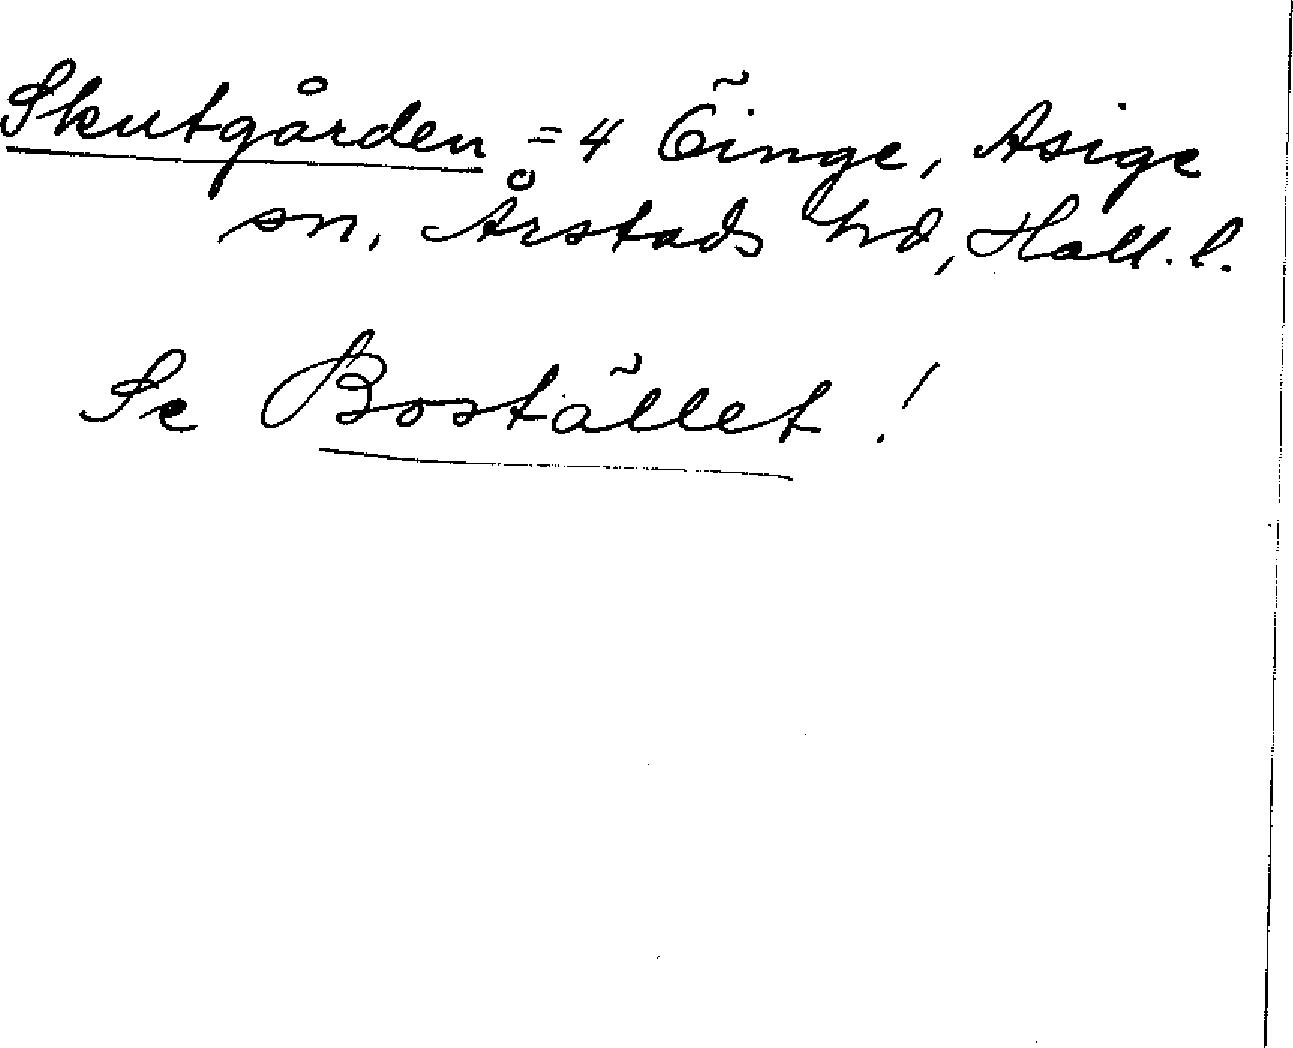 Skutgården = 4 Öinge, Asige
sn, Årstads hd, Hall. l.
Se Bostället !